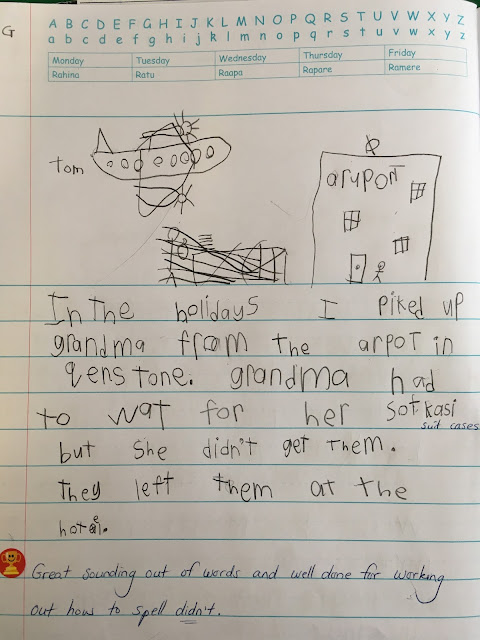 G
A B C D E F G H I J K L M N O P Q R S T U V W X Y Z
a b c d e f g h i j k l m n o p q r s t u v w x y z
Monday Tuesday Wednesday Thursday Friday
Rahina Ratu Raapa Rapare Ramere
Tom
aruport
In the holidays I piked up
grandma from the arpot in
qenstone. grandma had
to wat for her sotkasi
suit cases
but she didn't get them.
they left them at the
hotel.
Great sounding out of words and well done for working
out how to spell didn't.